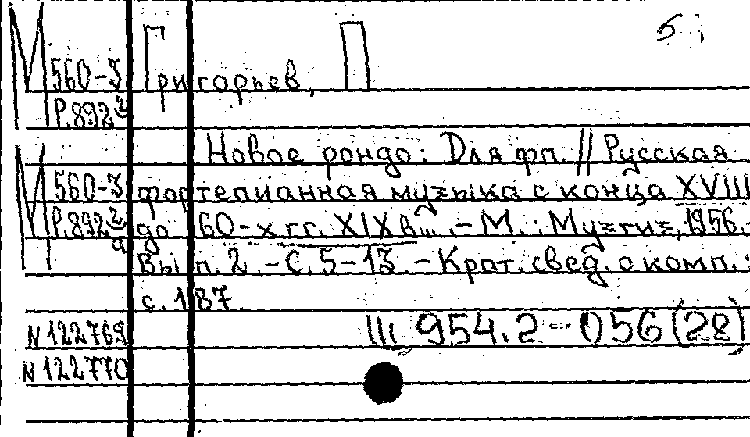 5
М 560-3 Григорьев, П
Р.892 2
Новое рондо: Для фп. // Русская
М 560-3 фортепианная музыка с конца XVIII
Р.892 2 до 60-х гг. XIX в. - М.: Музгиз, 1956. -
Вып. 2. - С. 5-13. - Крат. свед. о комп.:
с. 187
N 122769 Ш 954.2-056(28)
N 122770